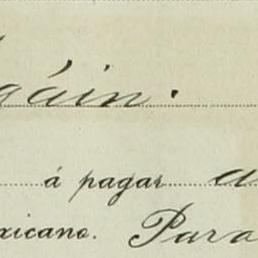 gáin.
á pagar a
xicano. Para